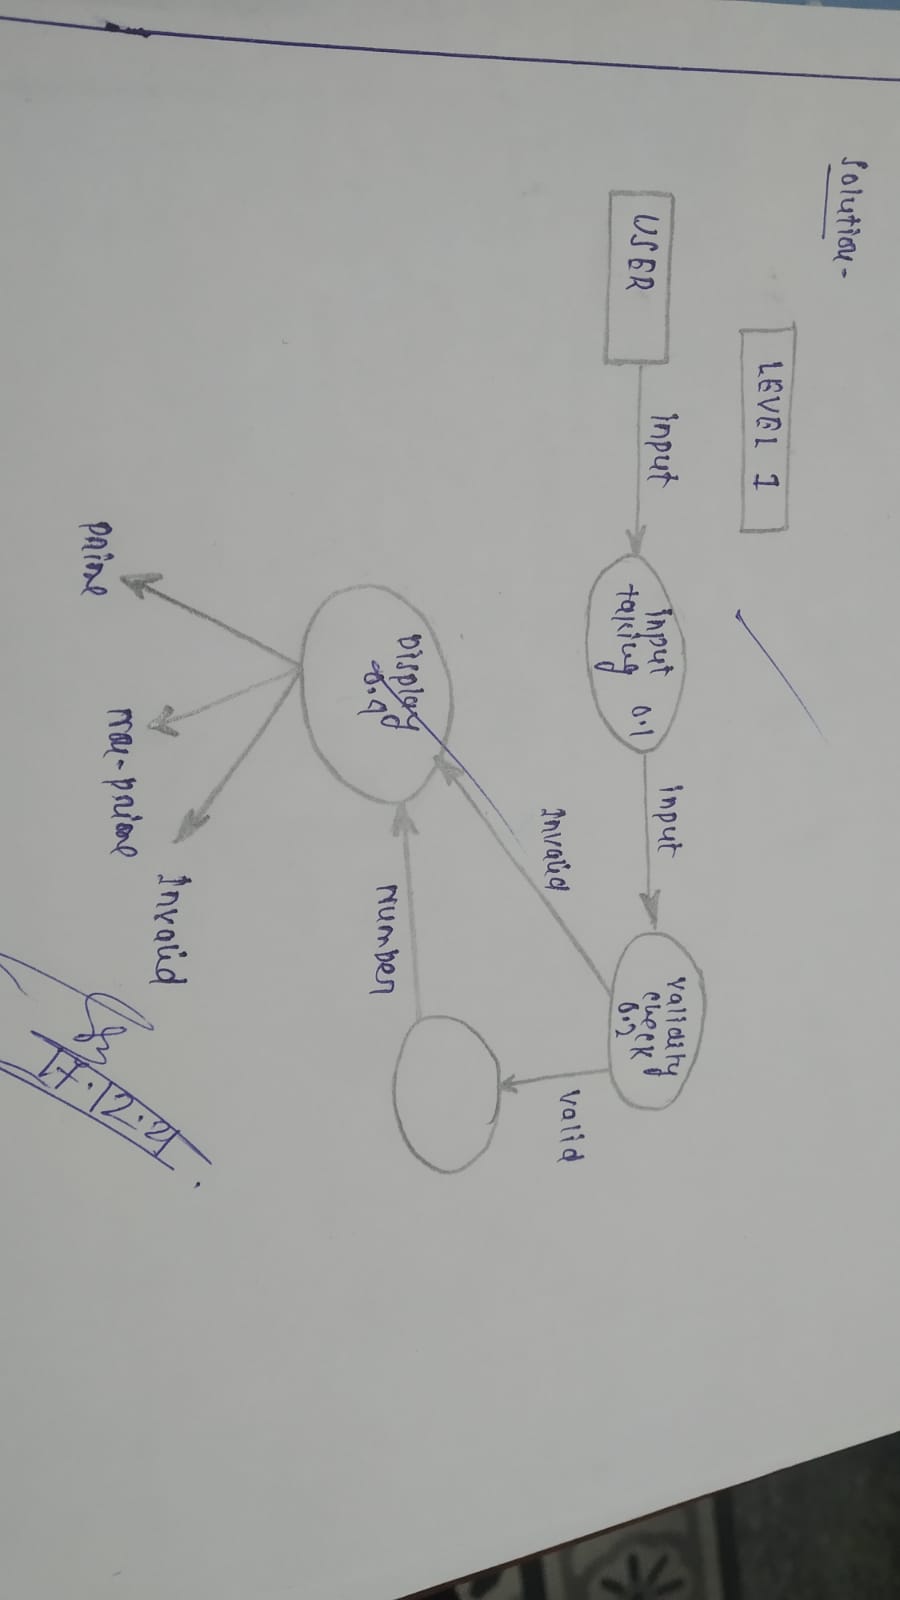 Solution-
LEVEL 1
USER
input
input
taking 0.1
input
validity
check
0.2
Invalid
valid
Display
0.4
Number
Prime
Non-prime
Invalid
17.12.21